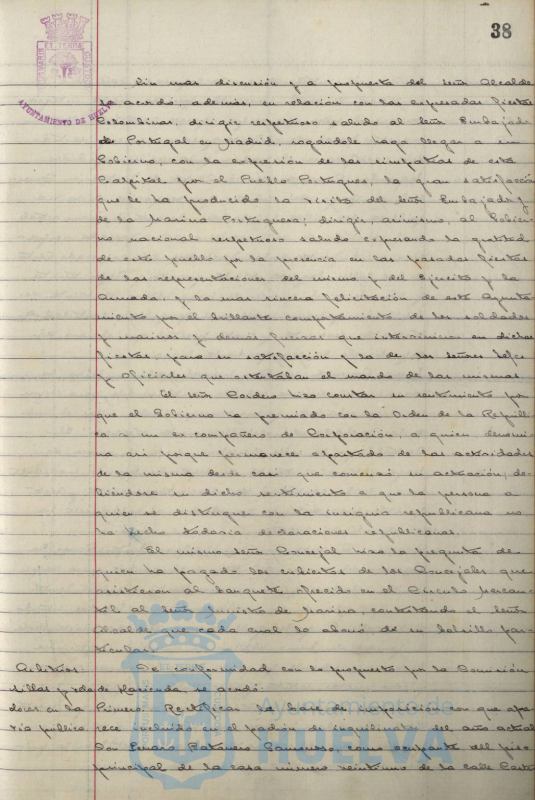 38
AYUNTAMIENTO DE HUELVA
Sin mas discusión y a propuesta del señor Alcalde
se acordó, además, en relación con las expresadas fiestas
Colombinas, dirigir respetuoso saludo al señor Embajador
de Portugal en Madrid, rogándole haga llegar a su
Gobierno, con la expresión de las simpatias de esta
Capital por el Pueblo Portugues, la gran satisfacción
que le ha producido la visita del señor Embajador y
de la Marina Portuguesa; dirigir, asimismo, al Gobier-
no nacional respetuoso saludo expresando la gratitud
de este pueblo por la presencia en las pasadas fiestas
de las representaciones del mismo y del Ejercito y la
Armada, y la mas sincera felicitación de este Ayunta-
miento por el brillante comportamiento de los soldados
y marinos y demás fuerzas que intervinieron en dichas
fiestas, para su satisfacción y la de los señores Jefes
y Oficiales que ostentaban el mando de las mismas.
El señor Cordero hizo constar su sentimiento por
que el Gobierno ha premiado con la Orden de la Repúbli-
ca a un ex compañero de Corporación, a quien denomi-
na asi porque permanece apartado de las actividades
de la misma desde casi que comenzó su actuación, de-
biéndose su dicho sentimiento a que la persona a
quien se distingue con la insignia republicana no
ha hecho todavia declaraciones republicanas.
El mismo señor Concejal hizo la pregunta de
quien ha pagado los cubiertos de los Concejales que
asistieron al banquete ofrecido en el Circulo Mercan-
til al señor Ministro de Marina, contestando el señor
Alcalde que cada cual lo abonó de su bolsillo par-
ticular.
Arbitrios: De conformidad con lo propuesto por la Comisión
sillas y veladores en la de Hacienda, se acordó:
via publica. Primero: Rectificar la base de imposición con que apa-
rece incluido en el padrón de inquilinato del año actual
Don Genaro Batanero, como ocupante del piso
principal de la casa número veintiuno de la calle
Ayuntamiento de
HUELVA